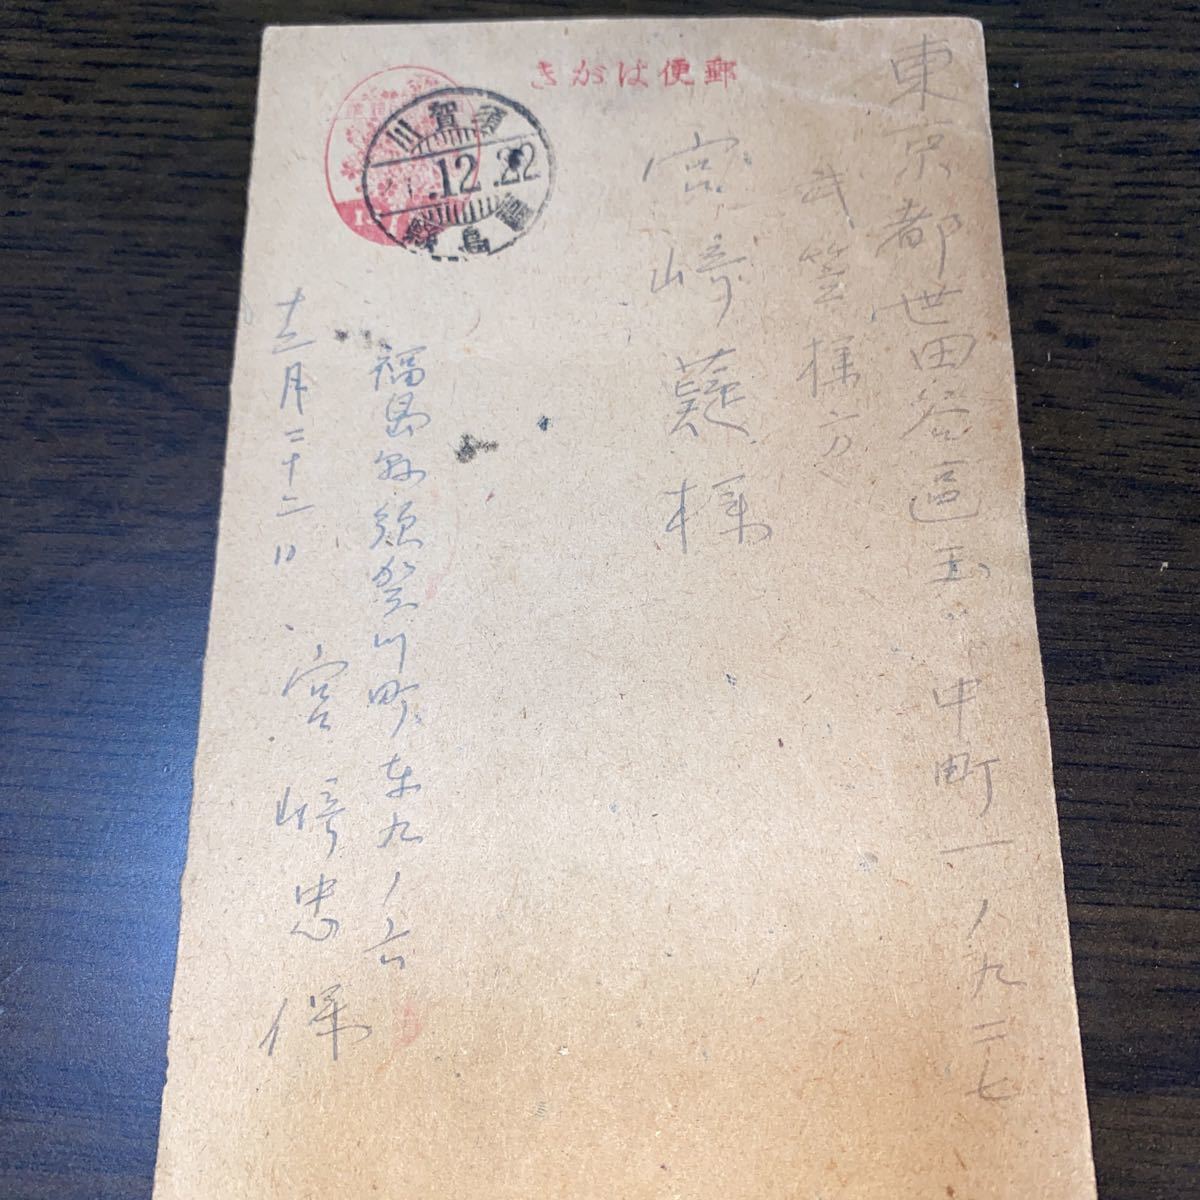 郵便はがき
須賀川
.12.22
福島縣
東京都世田谷區玉川中町一ノ九二七
武笠様方
宮崎 様
福島縣須賀川町東九ノ六
十二月二十二日
宮崎忠保